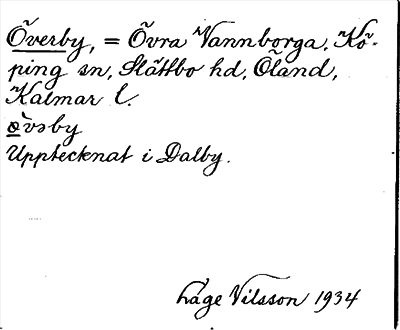 Överby, = Övra Vannborga, Kö-
ping sn, Slättbo hd, Öland,
Kalmar l.
ø̀vəby
Upptecknat i Dalby.
Åge Nilsson 1934